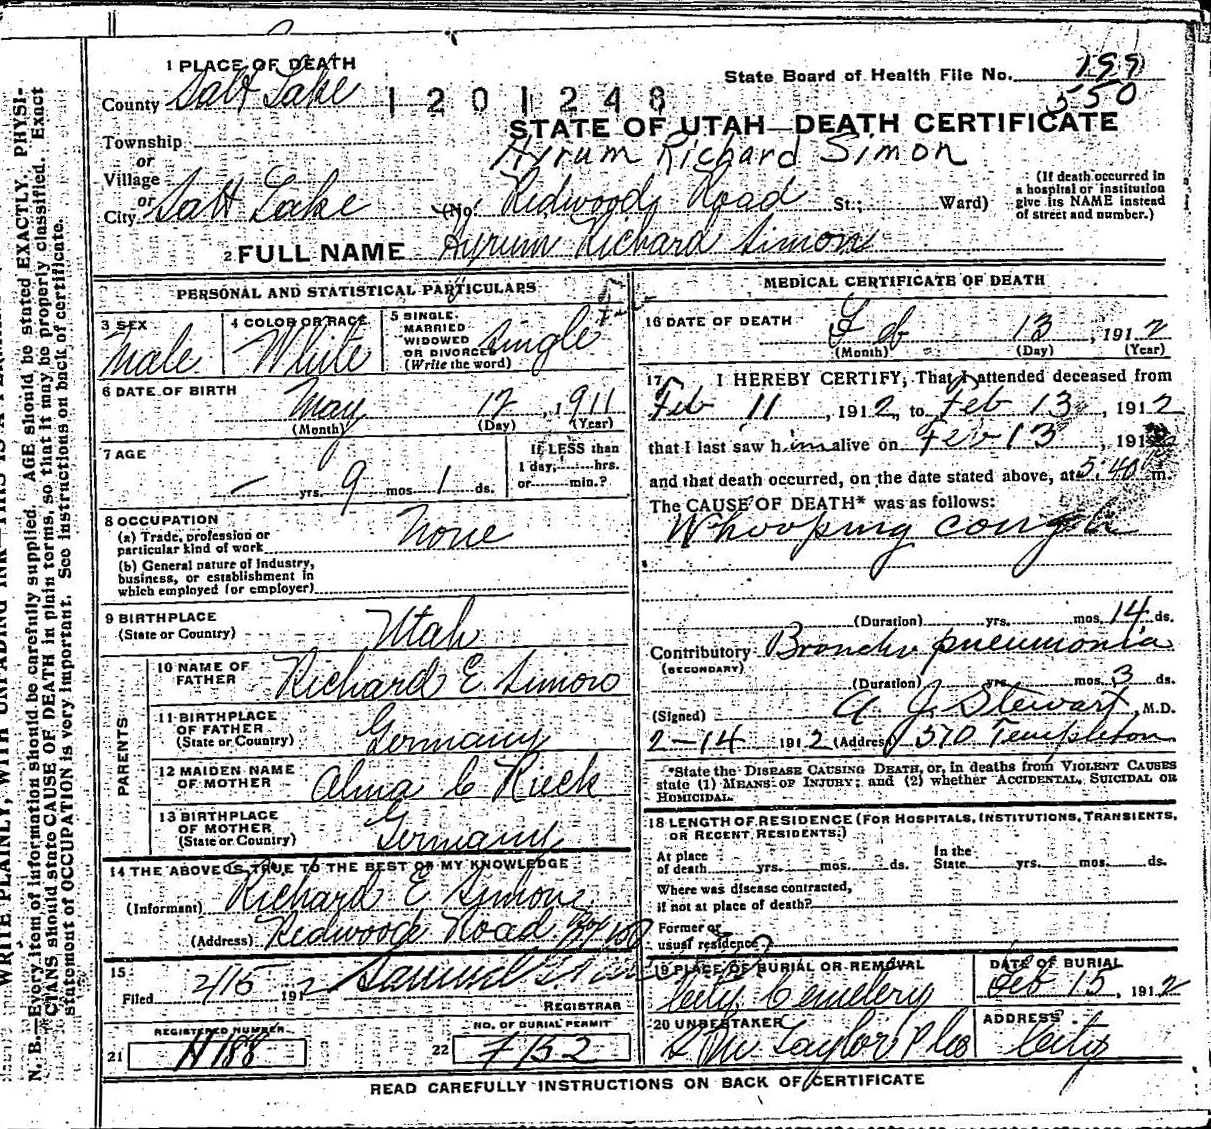 1 PLACE OF DEATH
State Board of Health File No. 199
County Salt Lake
1201248
550
STATE OF UTAH—DEATH CERTIFICATE
Township
Hyrum Richard Simon
or
Village
or
City Salt Lake (No. Redwood Road St.; Ward)
(If death occurred in a hospital or institution give its NAME instead of street and number.)
2 FULL NAME Hyrum Richard Simon
PERSONAL AND STATISTICAL PARTICULARS
3 SEX Male
4 COLOR OR RACE White
5 SINGLE, MARRIED WIDOWED OR DIVORCED (Write the word) Single
6 DATE OF BIRTH May 12, 1911
(Month) (Day) (Year)
7 AGE — yrs. 9 mos. 1 ds.
If LESS than 1 day, hrs. or min.?
8 OCCUPATION None
(a) Trade, profession or
particular kind of work
(b) General nature of industry,
business, or establishment in
which employed (or employer)
9 BIRTHPLACE
(State or Country) Utah
PARENTS
10 NAME OF FATHER Richard E. Simon
11 BIRTHPLACE OF FATHER (State or Country) Germany
12 MAIDEN NAME OF MOTHER Alma C Rieck
13 BIRTHPLACE OF MOTHER (State or Country) Germany
14 THE ABOVE IS TRUE TO THE BEST OF MY KNOWLEDGE
(Informant) Richard E Simon
(Address) Redwood Road
15
Filed 2/15 1912 Samuel G.
REGISTRAR
REGISTERED NUMBER
21 H188
NO. OF BURIAL PERMIT
22
MEDICAL CERTIFICATE OF DEATH
16 DATE OF DEATH Feb 13, 1912
(Month) (Day) (Year)
17 I HEREBY CERTIFY, That I attended deceased from
Feb 11, 1912, to Feb 13, 1912
that I last saw him alive on Feb 13, 191
and that death occurred, on the date stated above, at 5:40 m.
The CAUSE OF DEATH* was as follows:
Whooping cough
(Duration) yrs. mos. 14 ds.
Contributory Broncho pneumonia
(SECONDARY)
(Duration) yrs. mos. 3 ds.
(Signed) A J. Stewart, M.D.
2-14 1912 (Address) 570 Templeton
*State the DISEASE CAUSING DEATH, or, in deaths from VIOLENT CAUSES
state (1) MEANS OF INJURY; and (2) whether ACCIDENTAL, SUICIDAL OR
HOMICIDAL.
18 LENGTH OF RESIDENCE (FOR HOSPITALS, INSTITUTIONS, TRANSIENTS,
OR RECENT RESIDENTS.)
At place of death yrs. mos. ds. In the State yrs. mos. ds.
Where was disease contracted,
if not at place of death?
Former or
usual residence
19 PLACE OF BURIAL OR REMOVAL City Cemetery
DATE OF BURIAL Feb 15, 1912
20 UNDERTAKER S M Taylor & Co
ADDRESS City
READ CAREFULLY INSTRUCTIONS ON BACK OF CERTIFICATE
N. B.—Every item of information should be carefully supplied. AGE should be stated EXACTLY. PHYSI-
CIANS should state CAUSE OF DEATH in plain terms, so that it may be properly classified. Exact
statement of OCCUPATION is very important. See instructions on back of certificate.